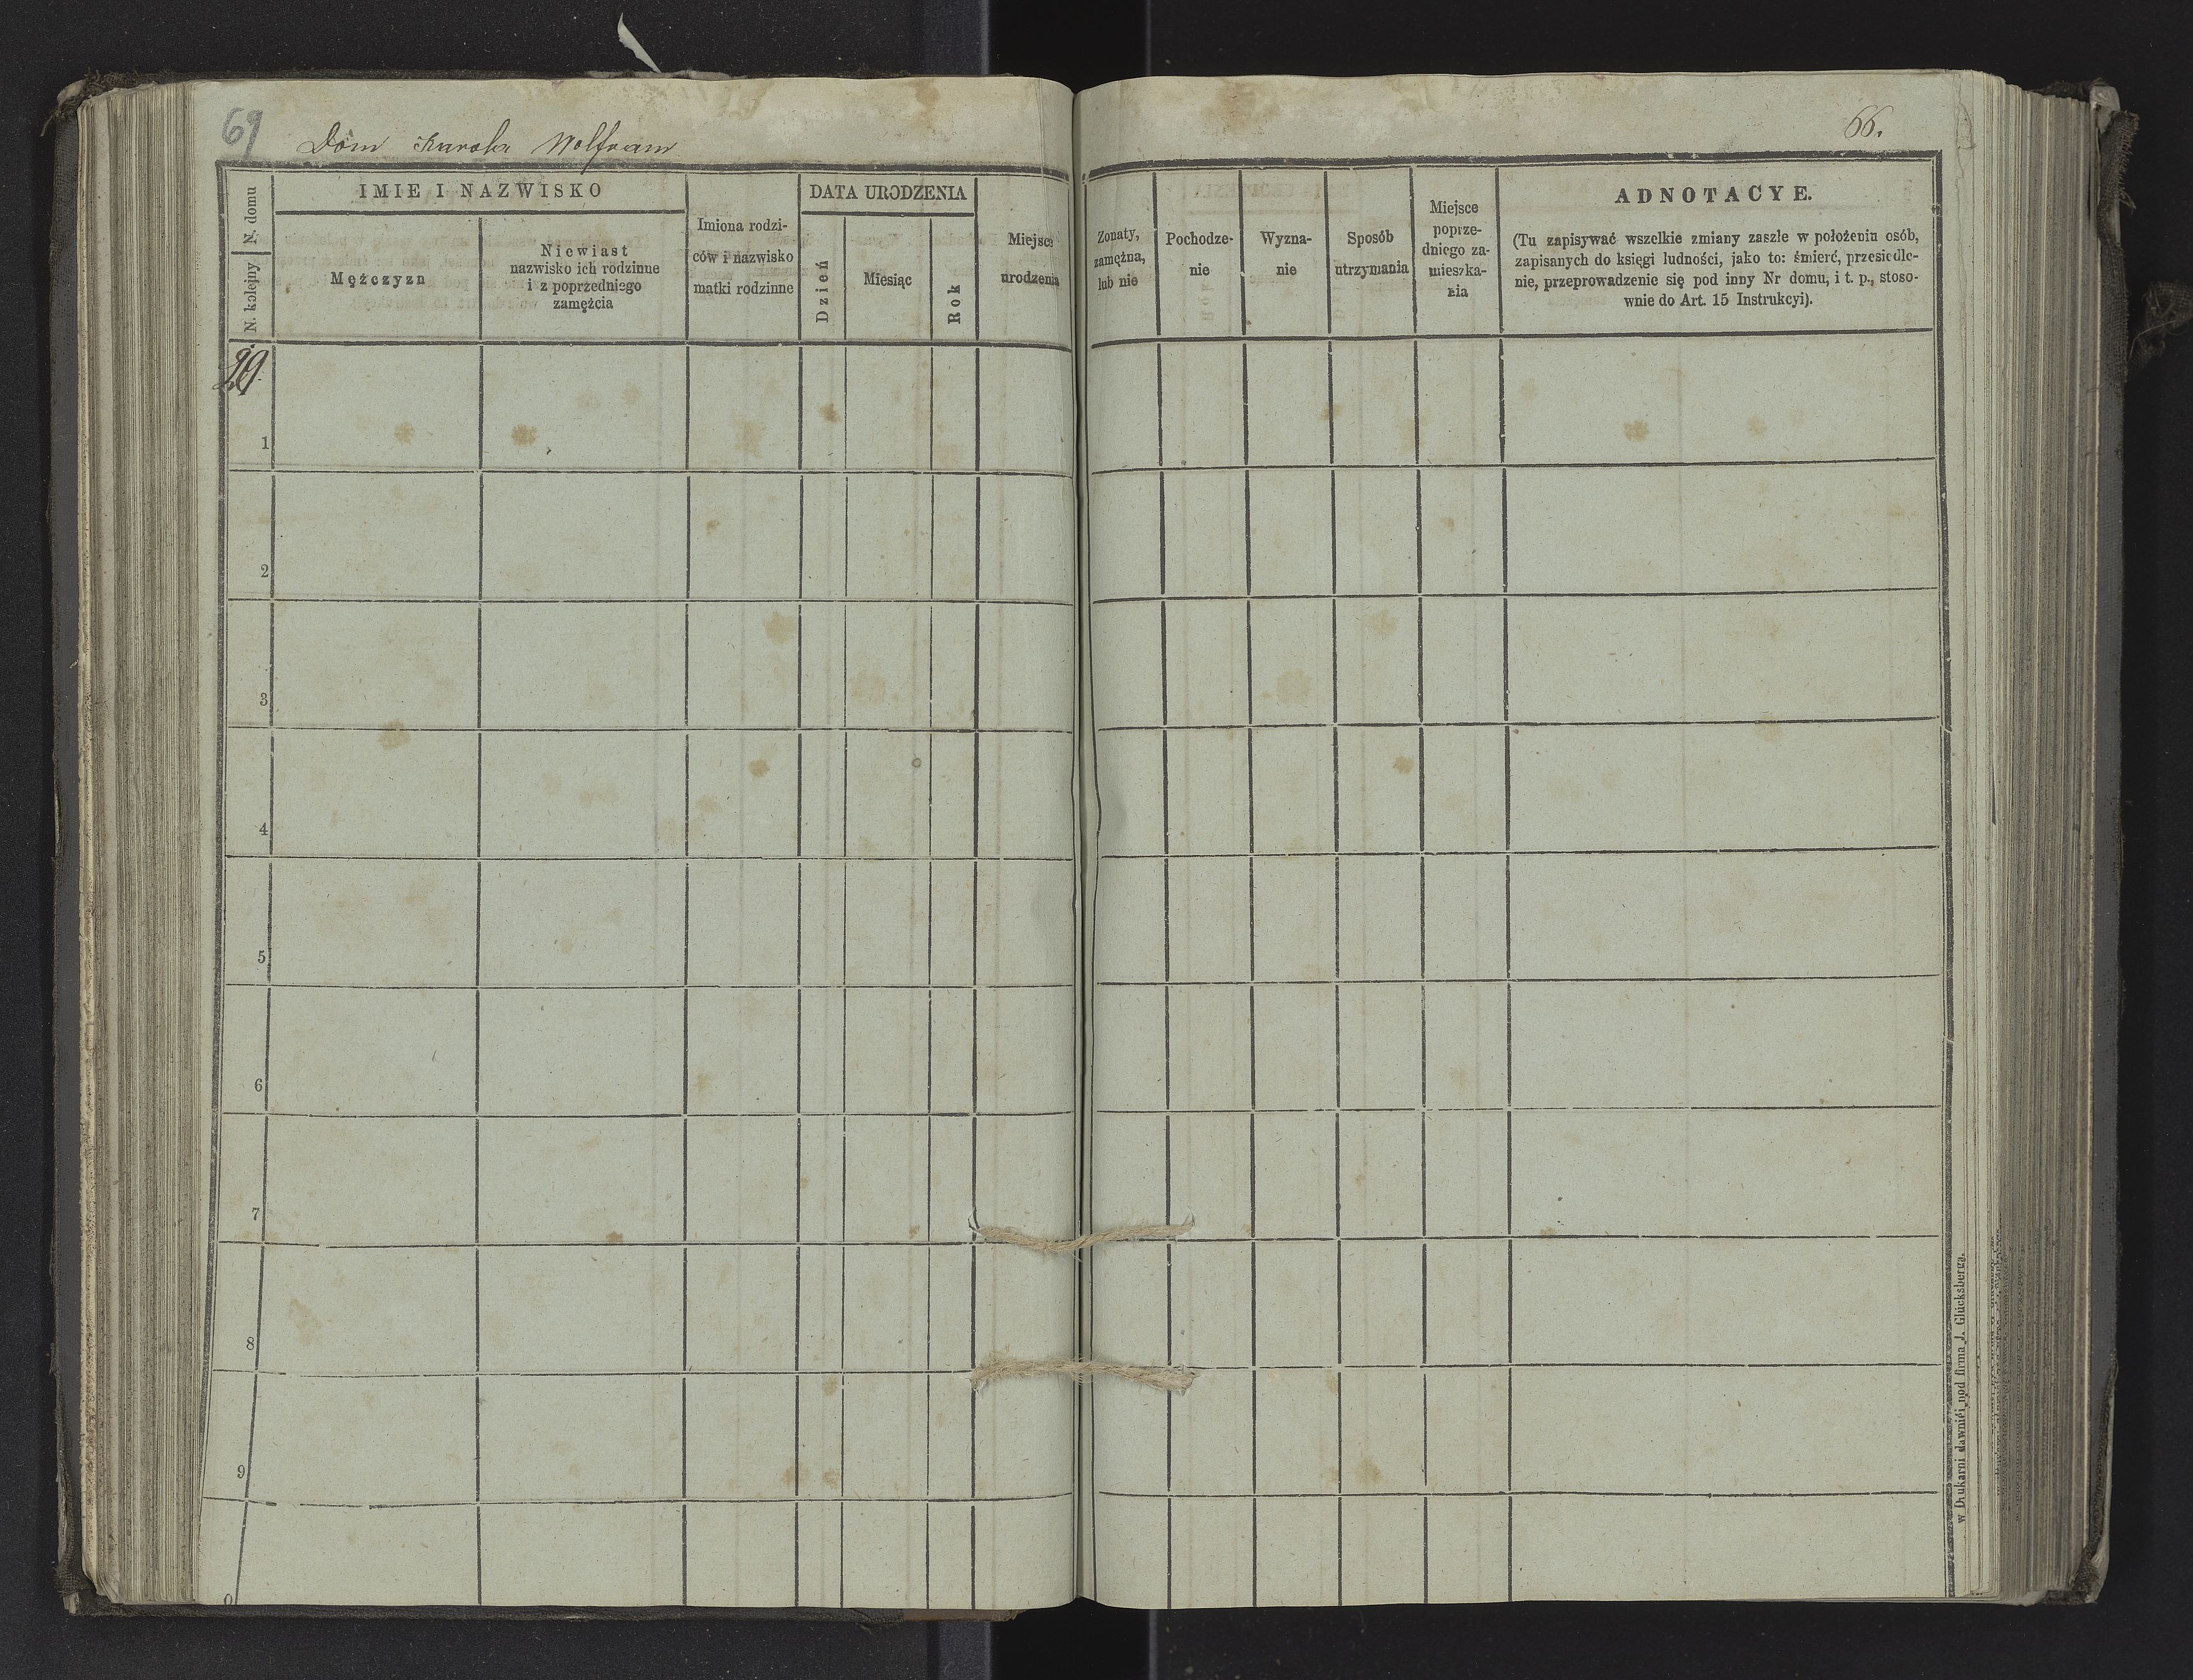 69
Dom Karola Wolfram
66.
N. domu
N. kolejny
IMIE I NAZWISKO
Mężczyzn
Niewiast
nazwisko ich rodzinne
i z poprzedniego
zamężcia
Imiona rodzi-
ców i nazwisko
matki rodzinne
DATA URODZENIA
Dzień
Miesiąc
Rok
Miejsce
urodzenia
Zonaty,
zamężna,
lub nie
Pochodze-
nie
Wyzna-
nie
Sposób
utrzymania
Miejsce
poprze-
dniego za-
mieszka-
nia
ADNOTACYE.
(Tu zapisywać wszelkie zmiany zaszłe w położeniu osób,
zapisanych do księgi ludności, jako to: śmierć, przesiedle-
nie, przeprowadzenie się pod inny Nr domu, i t. p., stoso-
wnie do Art. 15 Instrukcyi).
29
1
2
3
4
5
6
7
8
9
w Drukarni dawniéj pod firmą J. Glücksberga.